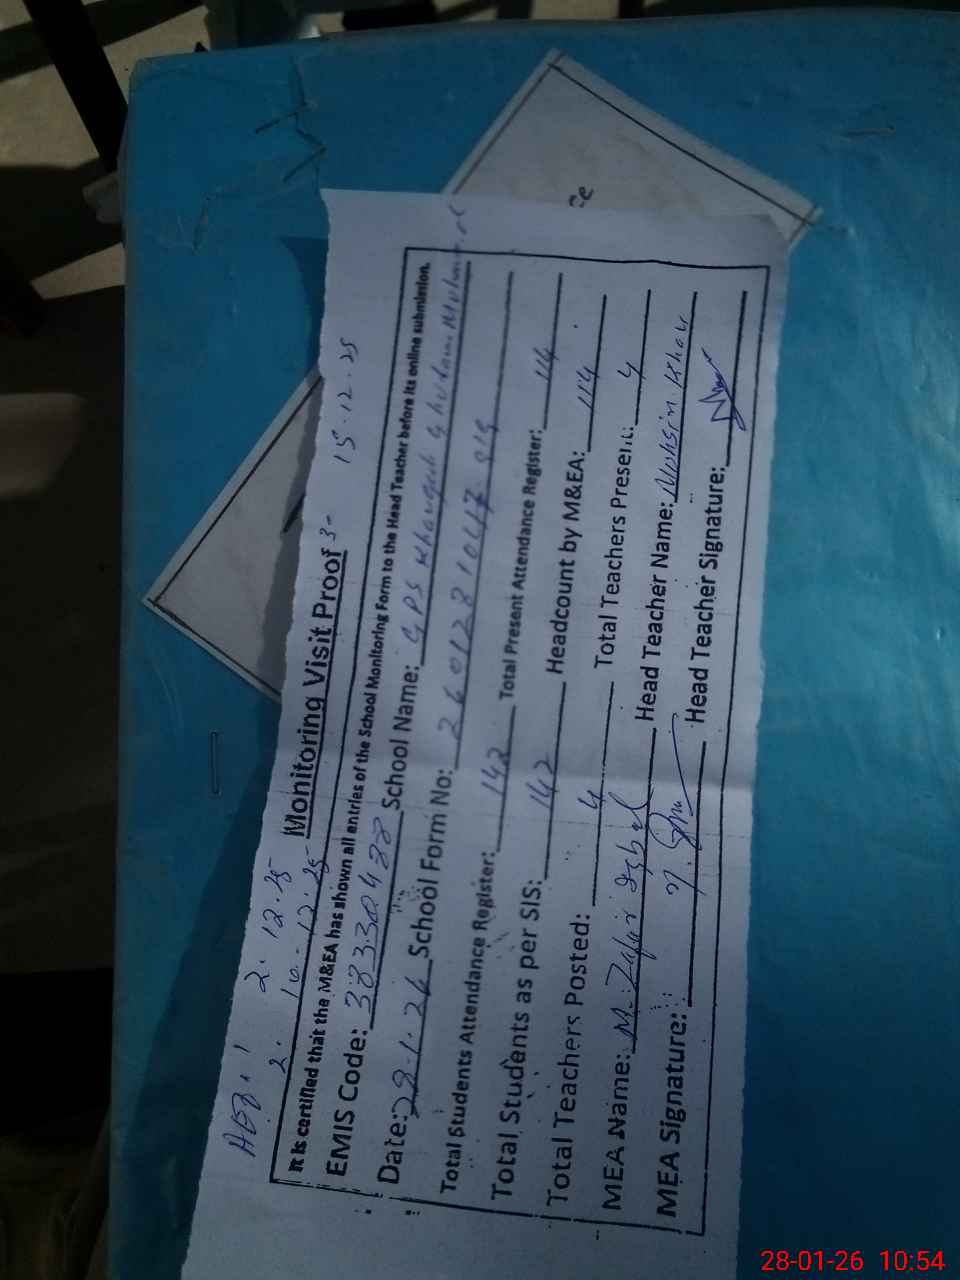 AEO: 1 2.12.25
2. 10.12.25 Monitoring Visit Proof 3- 15.12.25
It is certified that the M&EA has shown all entries of the School Monitoring Form to the Head Teacher before its online submission.
EMIS Code: School Name: GPS Khangah Ghulam
Date: 28.1.26 School Form No:
Total Students Attendance Register: 142 Total Present Attendance Register: 114
Total Students as per SIS: 142 Headcount by M&EA: 114
Total Teachers Posted: 4 Total Teachers Present: 4
MEA Name: M. Zafar Iqbal Head Teacher Name: Mohsin Khan
MEA Signature: Head Teacher Signature:
ce
28-01-26 10:54